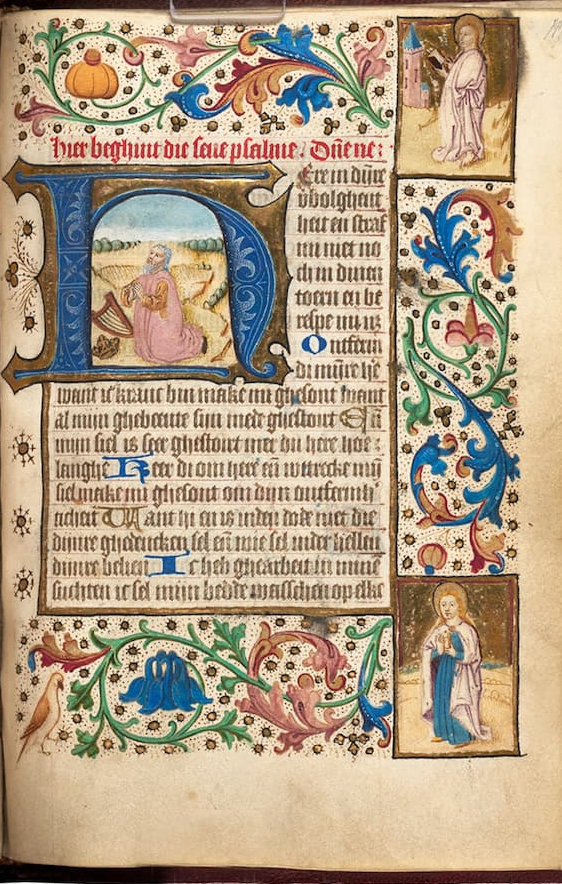 Hier beghint die seue psalme. Dñe ne:
HEre in dijnre
vbolghent
heit en straf
mi niet no
ch in dinen
toern en be
respe mi niz
Ontferm
di mijnre he
want ic kranc bin make mi ghesont want
al mijn ghebeente sijn mede ghestoert Eñ
mijn siel is seer ghestoert mer du here hoe
langhe Keer di om here eñ wtrecke mij
siel make mi ghesont om dijn ontfermh'
ticheit Want hi en is inder doot niet die
dinre ghedencken sel eñ wie sel inder hellen
dinre belien Ic heb ghearbeit in mine
suchten ic sel mijn bedde wasschen op elke